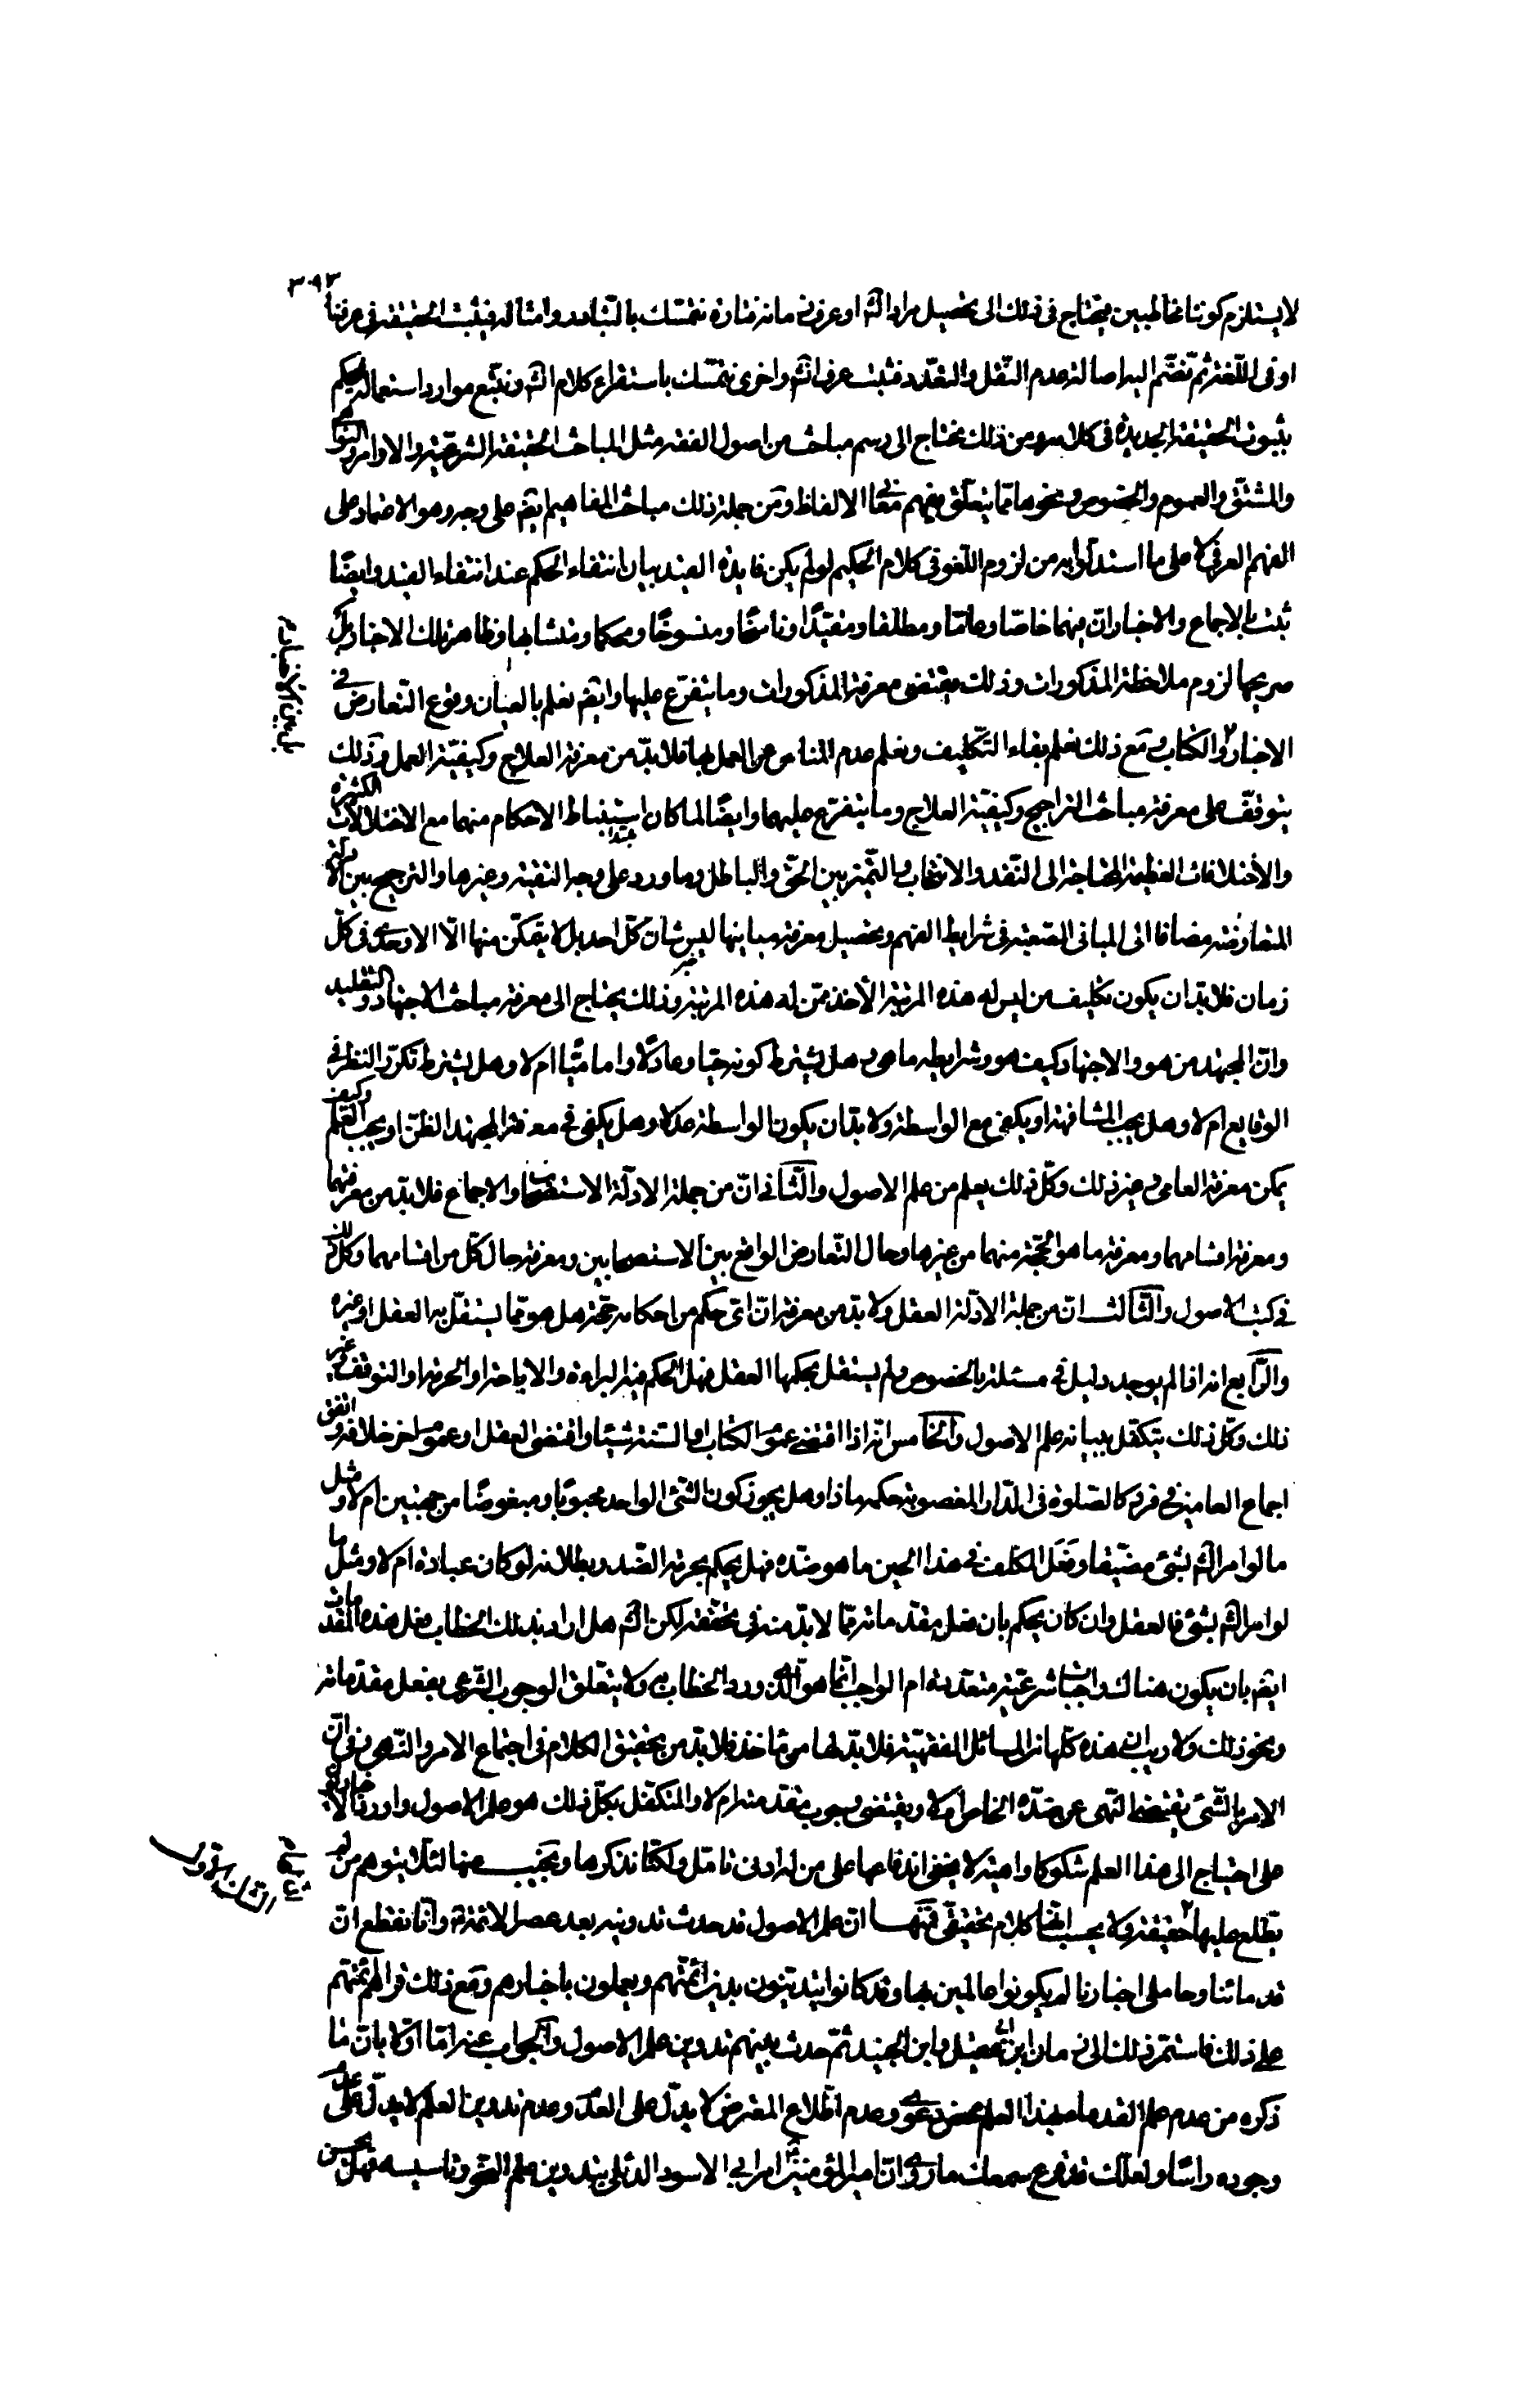 ٣٠٩٣
لا يستلزم كوننا مخاطبين فيحتاج في ذلك الى تحصيل مراد الشر او عرف زمانه فتارة نتمسّك بالتبادر وامثاله فيثبت الحقيقة في عرفنا
او في اللّغة ثم نضّم اليه اصالة عدم النّقل والتعدّد فيثبت عرف الشر واخرى نتمسّك باستقراء كلام الشر ونتبّع موارد استعماله ونحكم
بثبوت الحقيقة الجديدة في كلامه ومن ذلك يحتاج الى رسم مباحث من اصول الفقه مثل المباحث الحقيقة الشرعيّة والاوامر والنواهي
والمشتق والعموم والخصوص ونحوها ممّا يتعلّق بفهم معاني الالفاظ ومن جملة ذلك مباحث المفاهيم ايضم على وجه وهو الاعتماد على
الفهم العرفي لا على ما استدلّوا به من لزوم اللّغو في كلام الحكيم لو لم يكن فايدة القيد بيان انتفاء الحكم عند انتفاء القيد وايضًا
ثبت بالاجماع والاخبار انّ فيهما خاصّا وعامّا ومطلقا ومقيّدًا وناسخًا ومنسوخًا ومحكما ومتشابها وظاهر تلك الاخبار بل
صريحها لزوم ملاحظة المذكورات وذلك يقتضى معرفة المذكورات وما يتفرّع عليها وايضم نعلم بالعيان وقوع التّعارض في
الاخبار والكتاب ومع ذلك نعلم بقاء التّكليف ونعلم عدم المناص عن العمل بها فلا بدّ من معرفة العلاج وكيفيّة العمل وذلك
يتوقّف على معرفة مباحث التراجيح وكيفيّة العلاج وما يتفرّع عليهما وايضًا لما كان استنباط الاحكام منهما مع الاختلالات الكثيرة
والاختلافات العظيمة المحتاجة الى النّقد والانتخاب والتّميز بين الحقّ والباطل وما ورد على وجه التقيّة وغيرها والترجيح بين الادلّة
المتعارضة مضافا الى المباني الصّعبة في شرايط الفهم وتحصيل معرفة مباينها ليس شان كلّ احد بل لا يتمكّن منها الّا الاوحدى في كلّ
زمان فلا بدّ ان يكون تكليف من ليس له هذه المرتبة الأخذ ممّن له هذه المرتبة وذلك يحتاج الى معرفة مباحث الاجتهاد والتقليد
وانّ المجتهد من هو والاجتهاد كيف هو وشرايطه ما هى وهل يشترط كونه حيّا وعادلًا واماميًّا ام لا وهل يشترط تكرّر النّظر في
الوقايع ام لا وهل يجب المشافهة او يكفى مع الواسطة ولا بدّ ان يكون الواسطة عدلا وهل يكفى في معرفة المجتهد الظّنّ او يجب العلم وكيف
يمكن معرفة العامى وغير ذلك وكلّ ذلك يعلم من علم الاصول والثّاني انّ من جملة الادلّة الاستصحاب والاجماع فلا بدّ من معرفتهما
ومعرفة اقسامهما ومعرفة ما هو الحجّة منهما من غيرها وحال التّعارض الواقع بين الاستصحابين ومعرفة حال كلّ من اقسامهما وكلّ ذلك
في كتب الاصول والثّالث انّ من جملة الادلّة العقل ولا بدّ من معرفة انّ اىّ حكم من احكامه حجّة هل هو ممّا يستقلّ به العقل او غيره
والرّابع انه اذا لم يوجد دليل في مسئلة بالخصوص ولم يستقل بحكمها العقل فهل الحكم فيه البراءة والاباحة او الحرمة او التوقف او غير
ذلك وكلّ ذلك يتكفّل ببيانه علم الاصول والخامس انّه اذا اقتضى عموم الكتاب او السّنة شيئا واقتضى العقل او عموم اخر خلافه واتفق
اجماع العامين في فرد كالصّلوة في الدّار المغصوبة حكمه ماذا وهل يجوز كون الشّئ الواحد محبوبًا ومبغوضًا من جهتين ام لا ومثل
ما لو امر الشر بشئ مضيّقا وفعل المكلف في هذا الحين ما هو ضدّه فهل يحكم بحرمة الضّد وبطلانه لو كان عبادة ام لا ومثل ما
لو امر الشر بشئ فالعقل وان كان يحكم بان فعل مقدّماته ممّا لا بدّ منه في تحقّقه لكن الشر هل اراد بذلك الخطاب فعل هذه المقدمات
ايضم بان يكون هناك واجبات شرعيّة متعدّدة ام الواجب انّما هو الّذي ورد الخطاب به ولا يتعلّق الوجوب الشّرعي بفعل مقدّماته
ونحو ذلك ولا ريب انّ هذه كلّها من المسائل الفقهيّة فلا بدّ لها من ماخذ فلا بدّ من تحقيق الكلام في اجتماع الامر والنّهى وفي انّ
الامر بالشّئ يقتضى النّهى عن ضدّه الخاص ام لا ويقتضى وجوب مقدمته ام لا والمتكفّل بكلّ ذلك هو علم الاصول واورد الاخباريّة
على احتياج الى هذا العلم شكوكا واهية لا يخفى اندفاعها على من له ادنى تامّل ولكنّا نذكرها ونجيب عنها لئلا يتوهم من لم
يطّلع عليها حقيقة ولا يحسب انّها كلام تحقيقى فمنها انّ علم الاصول قد حدث تدوينه بعد عصر الائمة ع وانّا نقطع انّ
قدمائنا وحاملى اخبارنا لم يكونوا عالمين بها وقد كانوا يتديّنون بدين ائمّتهم ويعملون باخبارهم ومع ذلك قرّاهم ائمّتهم
على ذلك فاستمرّ ذلك الى زمان ابن ابى عقيل وابن الجنيد ثمّ حدث بينهم تدوين علم الاصول والجواب عنه امّا اوّلا بانّ ما
ذكره من عدم علم القدماء بهذا العلم محض دعوى وعدم اطّلاع المعترض لا يدلّ على العدم وعدم تدوين العلم لا يدلّ على عدم
وجوده راسًا ولعلّك قد قرع سمعك ما روى انّ امير المؤمنين ع امر ابي الاسود الدّئلى بتدوين علم النّحو وتاسيسه فهل يحسن